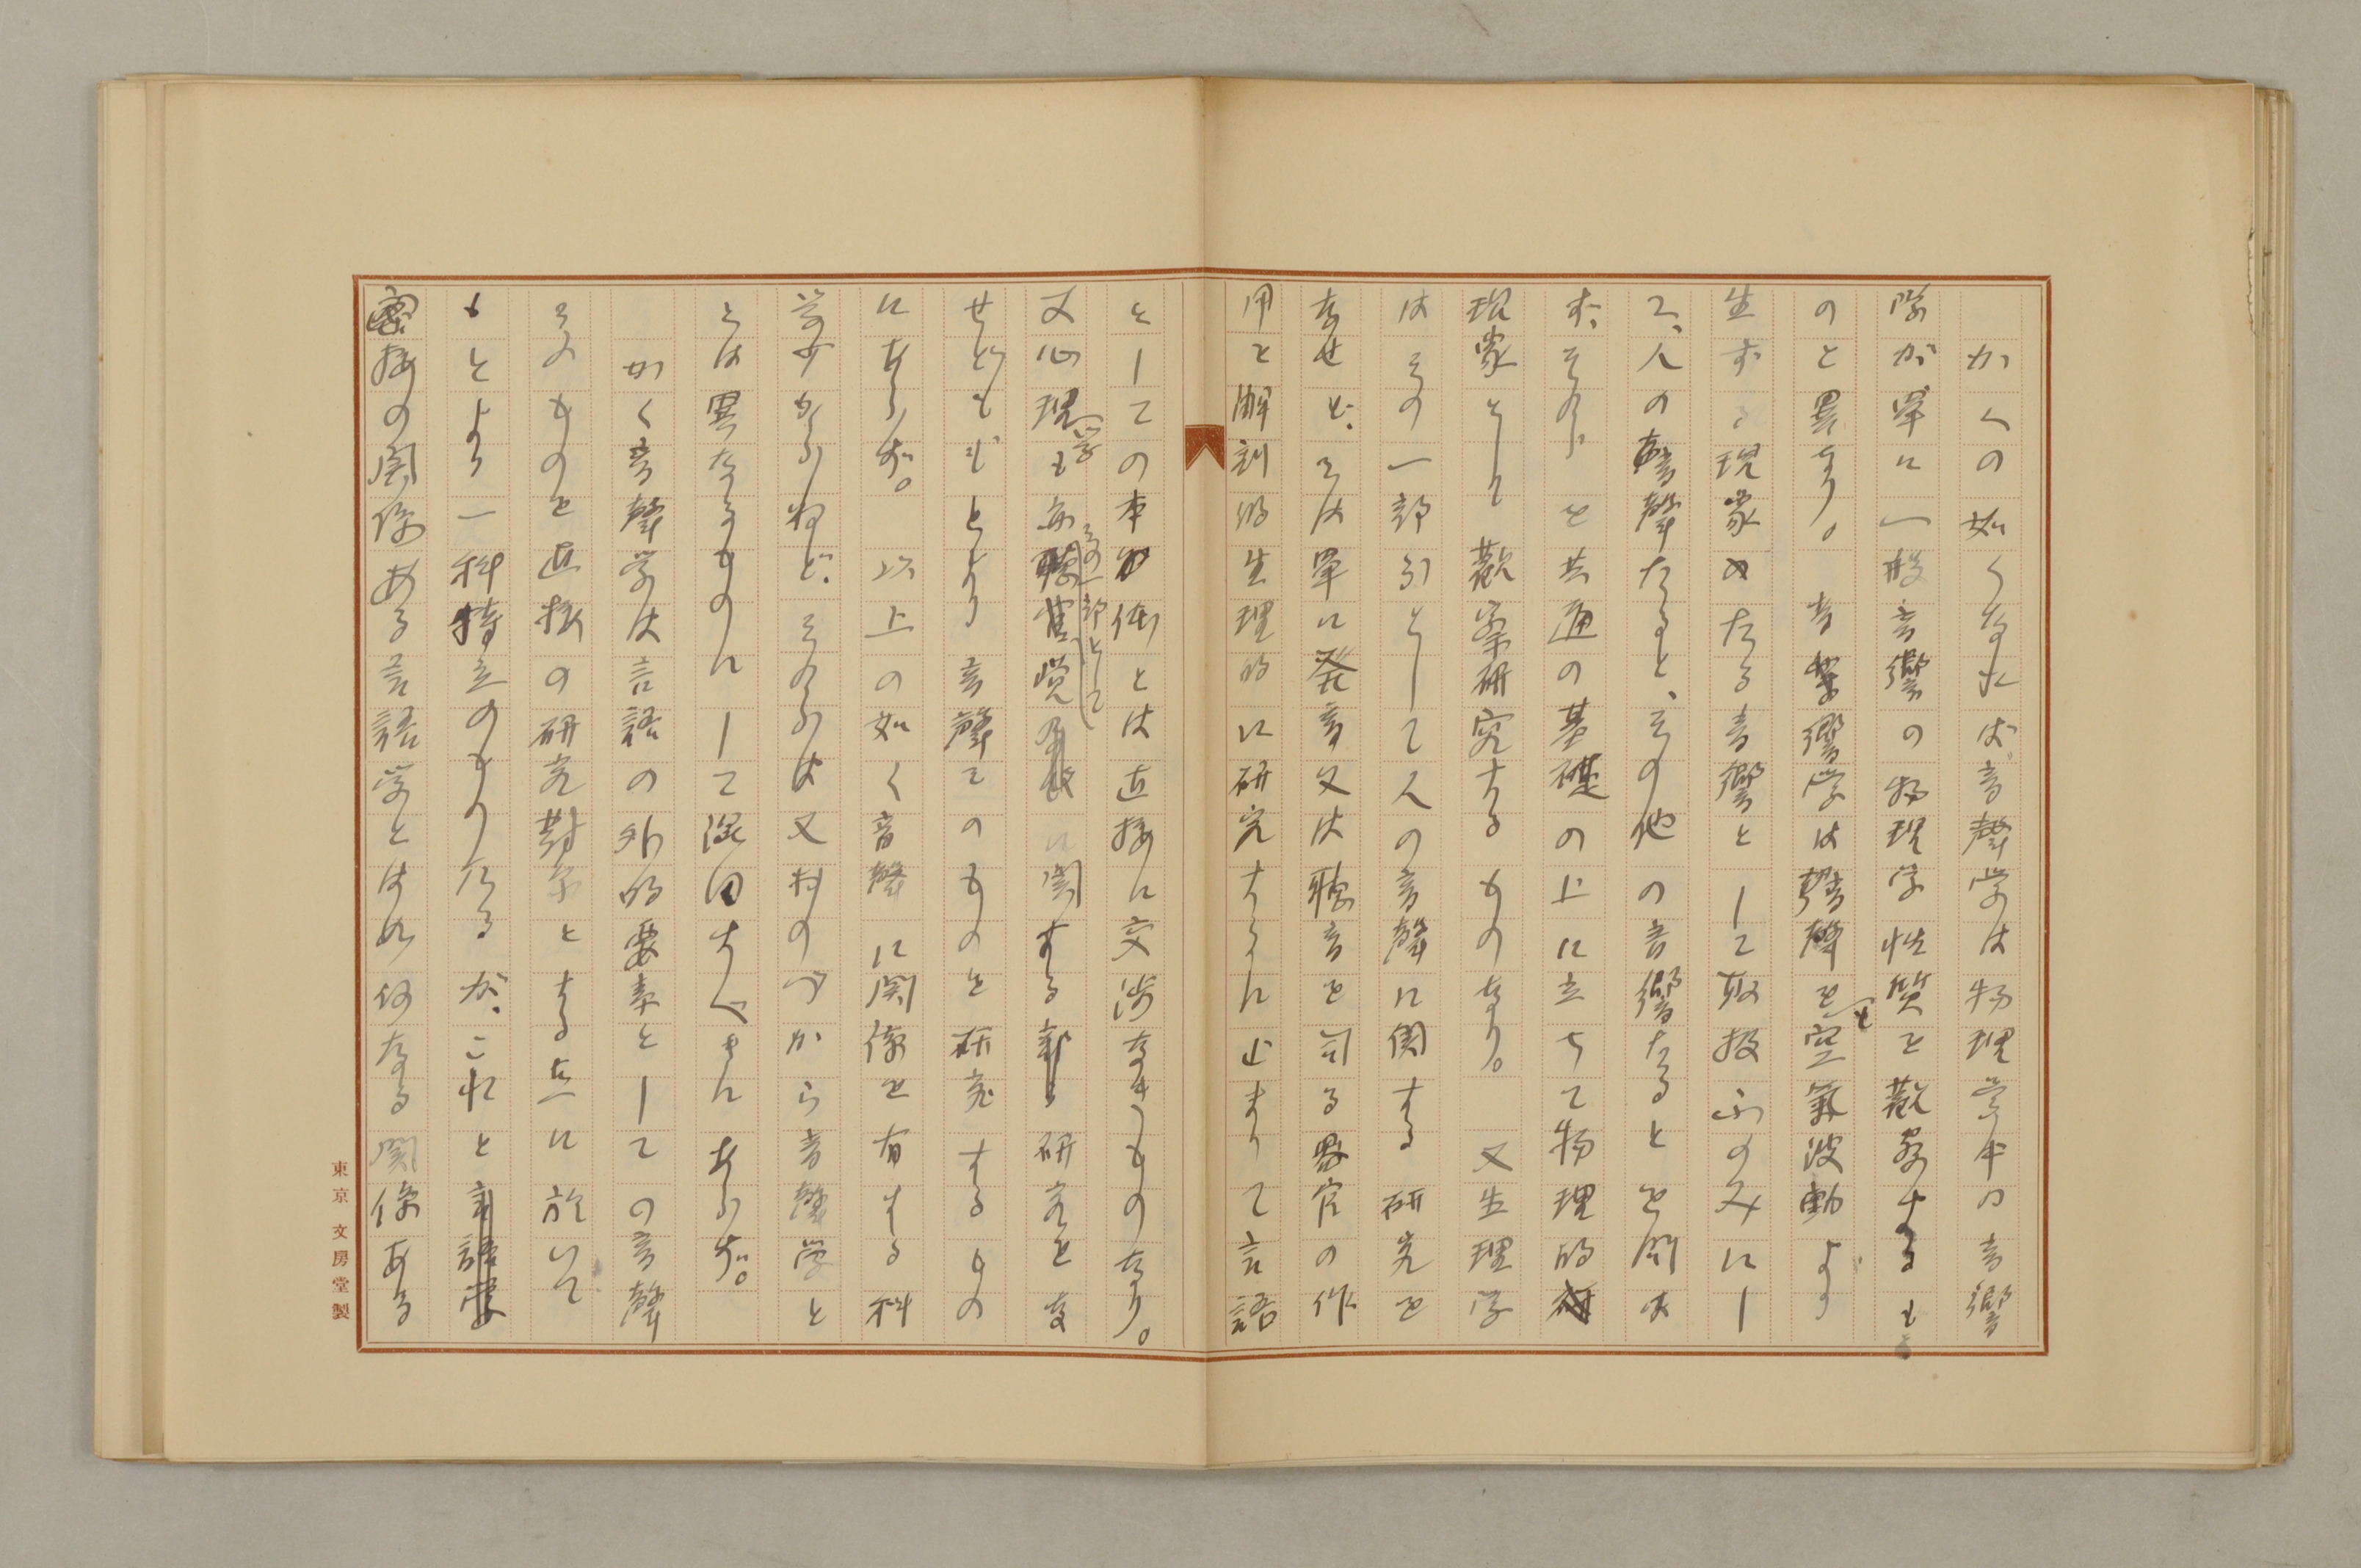 かくの如くなれば、音聲学は物理学中の音響
学が単に一般音響の物理学性質を觀察するも
のと異なり。音響学は聲音をも空氣波動より
生ずる現象のたる音響として取扱ふのみにし
て、人の音聲たると、その他の音響たるとを問は
ず、それらを共通の基礎の上に立ちて物理的
現象として觀察研究するものなり。又生理学
はその一部門として人の音聲に関する研究を
なせど、そは単に発音又は聽音を司る器官の作
用を解剖的生理的に研究するに止まりて言語
としての本体とは直接に交渉なきものなり。
又心理学も亦その一部として聽覚に関する研究を
せどももとより音聲そのものを研究するもの
にあらず。以上の如く音聲に関係を有する科
学少からねど、それらは又おのづから音聲学と
とは異なるものにして混同すべきにあらず。
かく音聲学は言語の外的要素としての音聲
そのものを直接の研究対象とする点に於いて
もとより一科特立のものたるが、これと
密接の関係ある言語学とは如何なる関係ある
東京 文房堂製